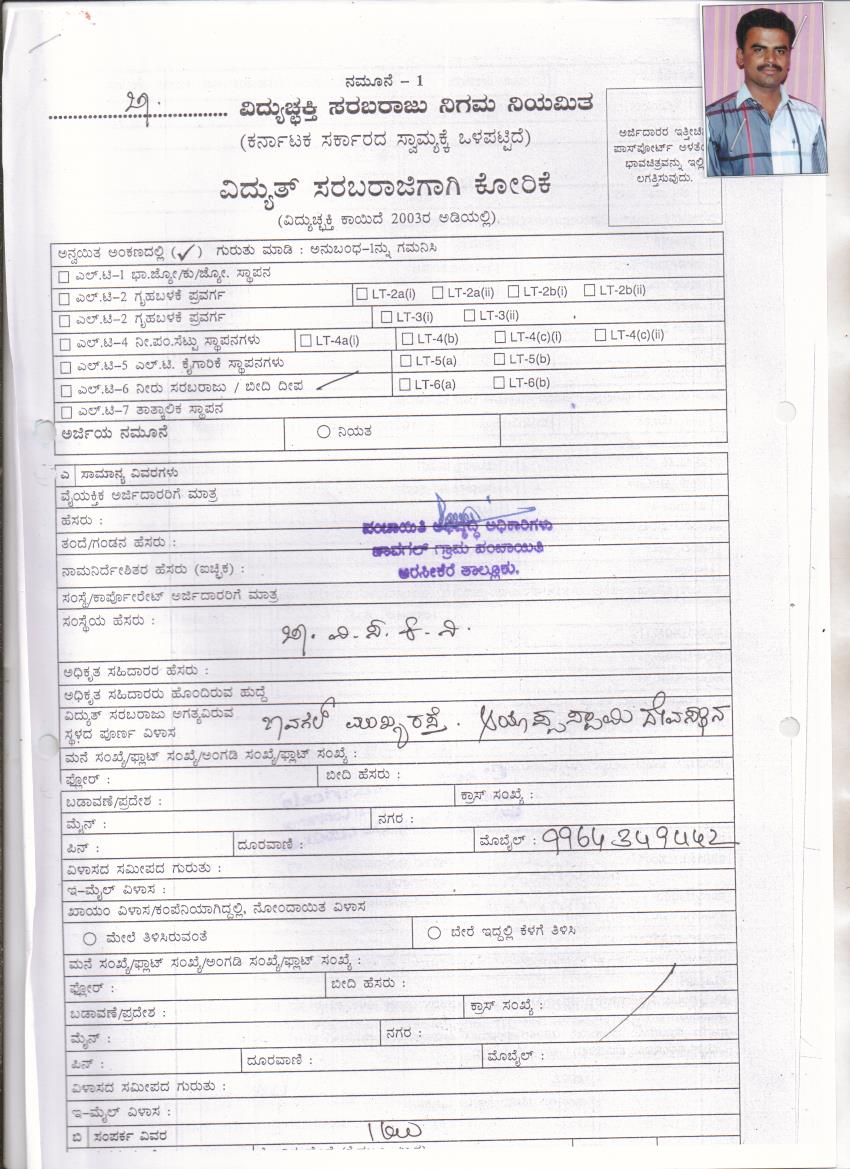 ನಮೂನೆ – 1
ವಿದ್ಯುಚ್ಛಕ್ತಿ ಸರಬರಾಜು ನಿಗಮ ನಿಯಮಿತ
(ಕರ್ನಾಟಕ ಸರ್ಕಾರದ ಸ್ವಾಮ್ಯಕ್ಕೆ ಒಳಪಟ್ಟಿದೆ)
ಅರ್ಜಿದಾರರ ಇತ್ತೀಚಿ
ಪಾಸ್‌ಪೋರ್ಟ್ ಅಳತೆಯ
ಭಾವಚಿತ್ರವನ್ನು ಇಲ್ಲಿ
ಲಗತ್ತಿಸುವುದು.
ವಿದ್ಯುತ್ ಸರಬರಾಜಿಗಾಗಿ ಕೋರಿಕೆ
(ವಿದ್ಯುಚ್ಛಕ್ತಿ ಕಾಯಿದೆ 2003ರ ಅಡಿಯಲ್ಲಿ)
ಅನ್ವಯಿತ ಅಂಕಣದಲ್ಲಿ (✓) ಗುರುತು ಮಾಡಿ : ಅನುಬಂಧ–1ನ್ನು ಗಮನಿಸಿ
ಎಲ್.ಟಿ–1 ಭಾ.ಜ್ಯೋ/ಕು/ಜ್ಯೋ. ಸ್ಥಾಪನ
ಎಲ್.ಟಿ–2 ಗೃಹಬಳಕೆ ಪ್ರವರ್ಗ LT-2a(i) LT-2a(ii) LT-2b(i) LT-2b(ii)
ಎಲ್.ಟಿ–2 ಗೃಹಬಳಕೆ ಪ್ರವರ್ಗ LT-3(i) LT-3(ii)
ಎಲ್.ಟಿ–4 ನೀ.ಪಂ.ಸೆಟ್ಟು ಸ್ಥಾಪನಗಳು LT-4a(i) LT-4(b) LT-4(c)(i) LT-4(c)(ii)
ಎಲ್.ಟಿ–5 ಎಲ್.ಟಿ. ಕೈಗಾರಿಕೆ ಸ್ಥಾಪನಗಳು LT-5(a) LT-5(b)
ಎಲ್.ಟಿ–6 ನೀರು ಸರಬರಾಜು / ಬೀದಿ ದೀಪ LT-6(a) LT-6(b)
ಎಲ್.ಟಿ–7 ತಾತ್ಕಾಲಿಕ ಸ್ಥಾಪನ
ಅರ್ಜಿಯ ನಮೂನೆ ನಿಯತ
ಎ ಸಾಮಾನ್ಯ ವಿವರಗಳು
ವೈಯಕ್ತಿಕ ಅರ್ಜಿದಾರರಿಗೆ ಮಾತ್ರ
ಹೆಸರು : ಪಂಚಾಯಿತಿ ಅಭಿವೃದ್ಧಿ ಅಧಿಕಾರಿಗಳು
ತಂದೆ/ಗಂಡನ ಹೆಸರು : ಜಾವಗಲ್ ಗ್ರಾಮ ಪಂಚಾಯಿತಿ
ನಾಮನಿರ್ದೇಶಿತರ ಹೆಸರು (ಐಚ್ಛಿಕ) : ಅರಸೀಕೆರೆ ತಾಲ್ಲೂಕು.
ಸಂಸ್ಥೆ/ಕಾರ್ಪೋರೇಟ್ ಅರ್ಜಿದಾರರಿಗೆ ಮಾತ್ರ
ಸಂಸ್ಥೆಯ ಹೆಸರು :
ಅಧಿಕೃತ ಸಹಿದಾರರ ಹೆಸರು :
ಅಧಿಕೃತ ಸಹಿದಾರರು ಹೊಂದಿರುವ ಹುದ್ದೆ
ವಿದ್ಯುತ್ ಸರಬರಾಜು ಅಗತ್ಯವಿರುವ
ಸ್ಥಳದ ಪೂರ್ಣ ವಿಳಾಸ ಜಾವಗಲ್ ಮುಖ್ಯರಸ್ತೆ. ಅಯ್ಯಪ್ಪಸ್ವಾಮಿ ದೇವಸ್ಥಾನ
ಮನೆ ಸಂಖ್ಯೆ/ಫ್ಲಾಟ್ ಸಂಖ್ಯೆ/ಅಂಗಡಿ ಸಂಖ್ಯೆ/ಪ್ಲಾಟ್ ಸಂಖ್ಯೆ :
ಫ್ಲೋರ್ : ಬೀದಿ ಹೆಸರು :
ಬಡಾವಣೆ/ಪ್ರದೇಶ : ಕ್ರಾಸ್ ಸಂಖ್ಯೆ :
ಮೈನ್ : ನಗರ :
ಪಿನ್ : ದೂರವಾಣಿ : ಮೊಬೈಲ್ : 9964349442
ವಿಳಾಸದ ಸಮೀಪದ ಗುರುತು :
ಇ–ಮೈಲ್ ವಿಳಾಸ :
ಖಾಯಂ ವಿಳಾಸ/ಕಂಪೆನಿಯಾಗಿದ್ದಲ್ಲಿ, ನೋಂದಾಯಿತ ವಿಳಾಸ
ಮೇಲೆ ತಿಳಿಸಿರುವಂತೆ ಬೇರೆ ಇದ್ದಲ್ಲಿ ಕೆಳಗೆ ತಿಳಿಸಿ
ಮನೆ ಸಂಖ್ಯೆ/ಫ್ಲಾಟ್ ಸಂಖ್ಯೆ/ಅಂಗಡಿ ಸಂಖ್ಯೆ/ಪ್ಲಾಟ್ ಸಂಖ್ಯೆ :
ಫ್ಲೋರ್ : ಬೀದಿ ಹೆಸರು :
ಬಡಾವಣೆ/ಪ್ರದೇಶ : ಕ್ರಾಸ್ ಸಂಖ್ಯೆ :
ಮೈನ್ : ನಗರ :
ಪಿನ್ : ದೂರವಾಣಿ : ಮೊಬೈಲ್ :
ವಿಳಾಸದ ಸಮೀಪದ ಗುರುತು :
ಇ–ಮೈಲ್ ವಿಳಾಸ :
ಬಿ ಸಂಪರ್ಕ ವಿವರ